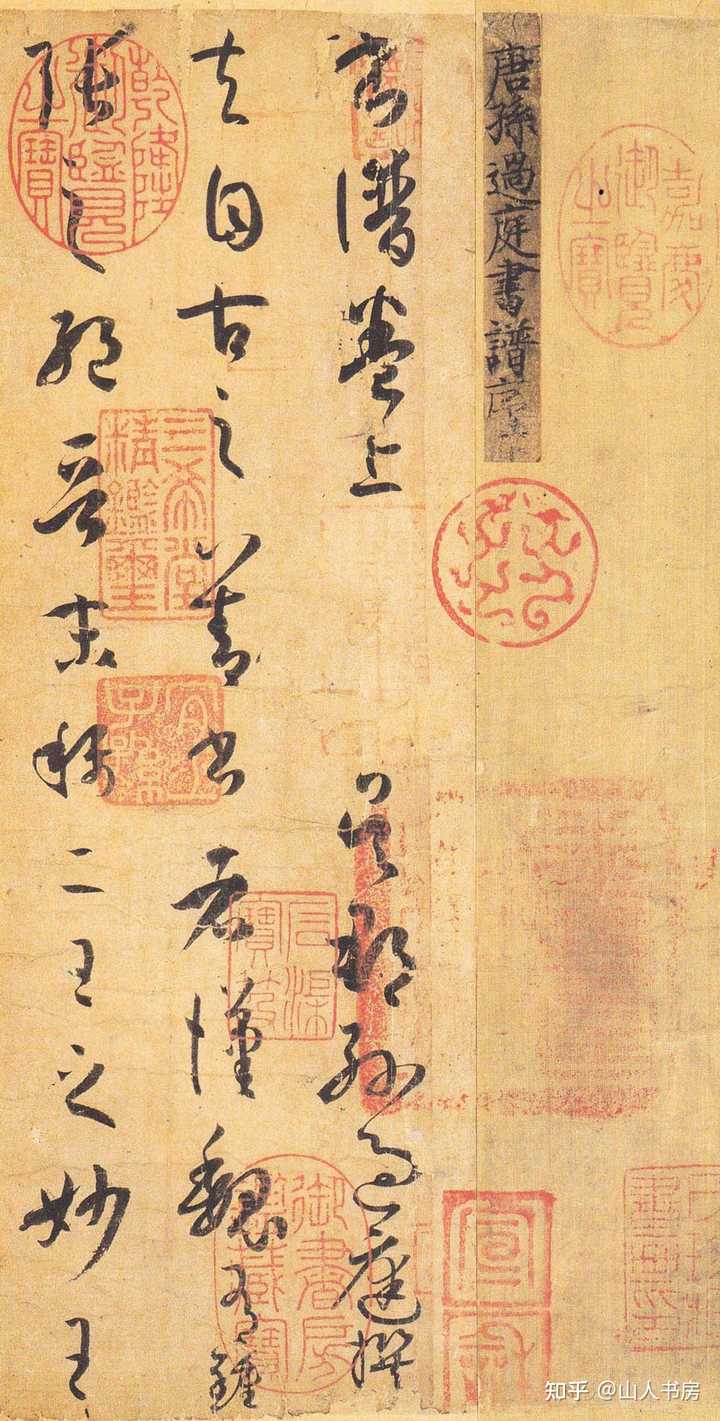 嘉慶御覽之寶
唐孫過庭書譜序
書譜卷上 吳郡孫過庭撰
夫自古之善書者漢魏有鍾
張之絕晉末稱二王之妙王
乾隆御覽之寶
三希堂精鑑璽
宜子孫
石渠寶笈
御書房鑑藏寶
宣和
知乎 @山人书房